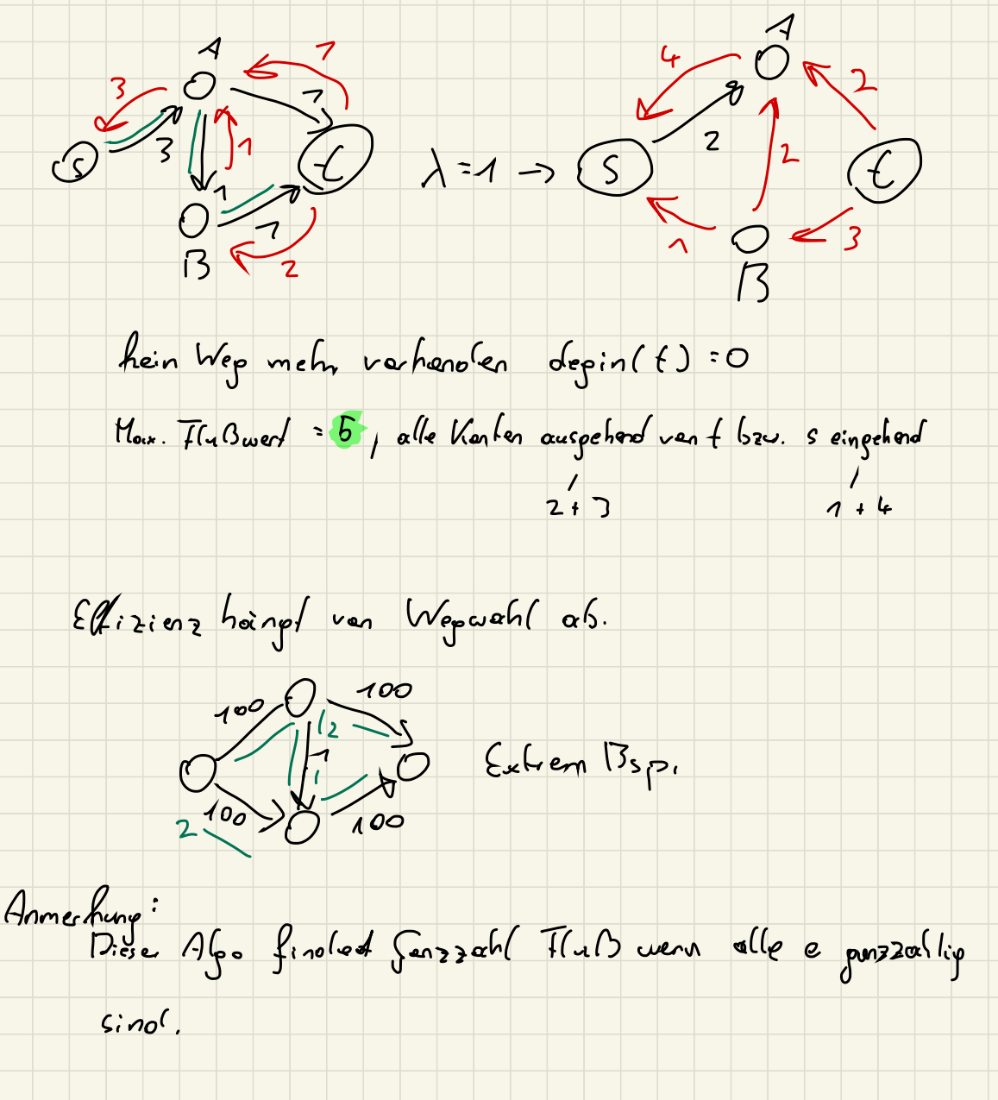 A
1
3
3
S
1
1
1
t
1
2
B
λ=1 →
A
4
2
2
S
2
t
1
3
B
kein Weg mehr vorhanden degin(t) = 0
Max. Flußwert = 5, alle Kanten ausgehend von t bzw. s eingehend
2 + 3 1 + 4
Effizienz hängt von Wegwahl ab.
100 100
2
1
1
100
2
100
Extrem Bsp.
Anmerkung:
Dieser Algo findet Ganzzahl Fluß wenn alle e ganzzahlig
sind.